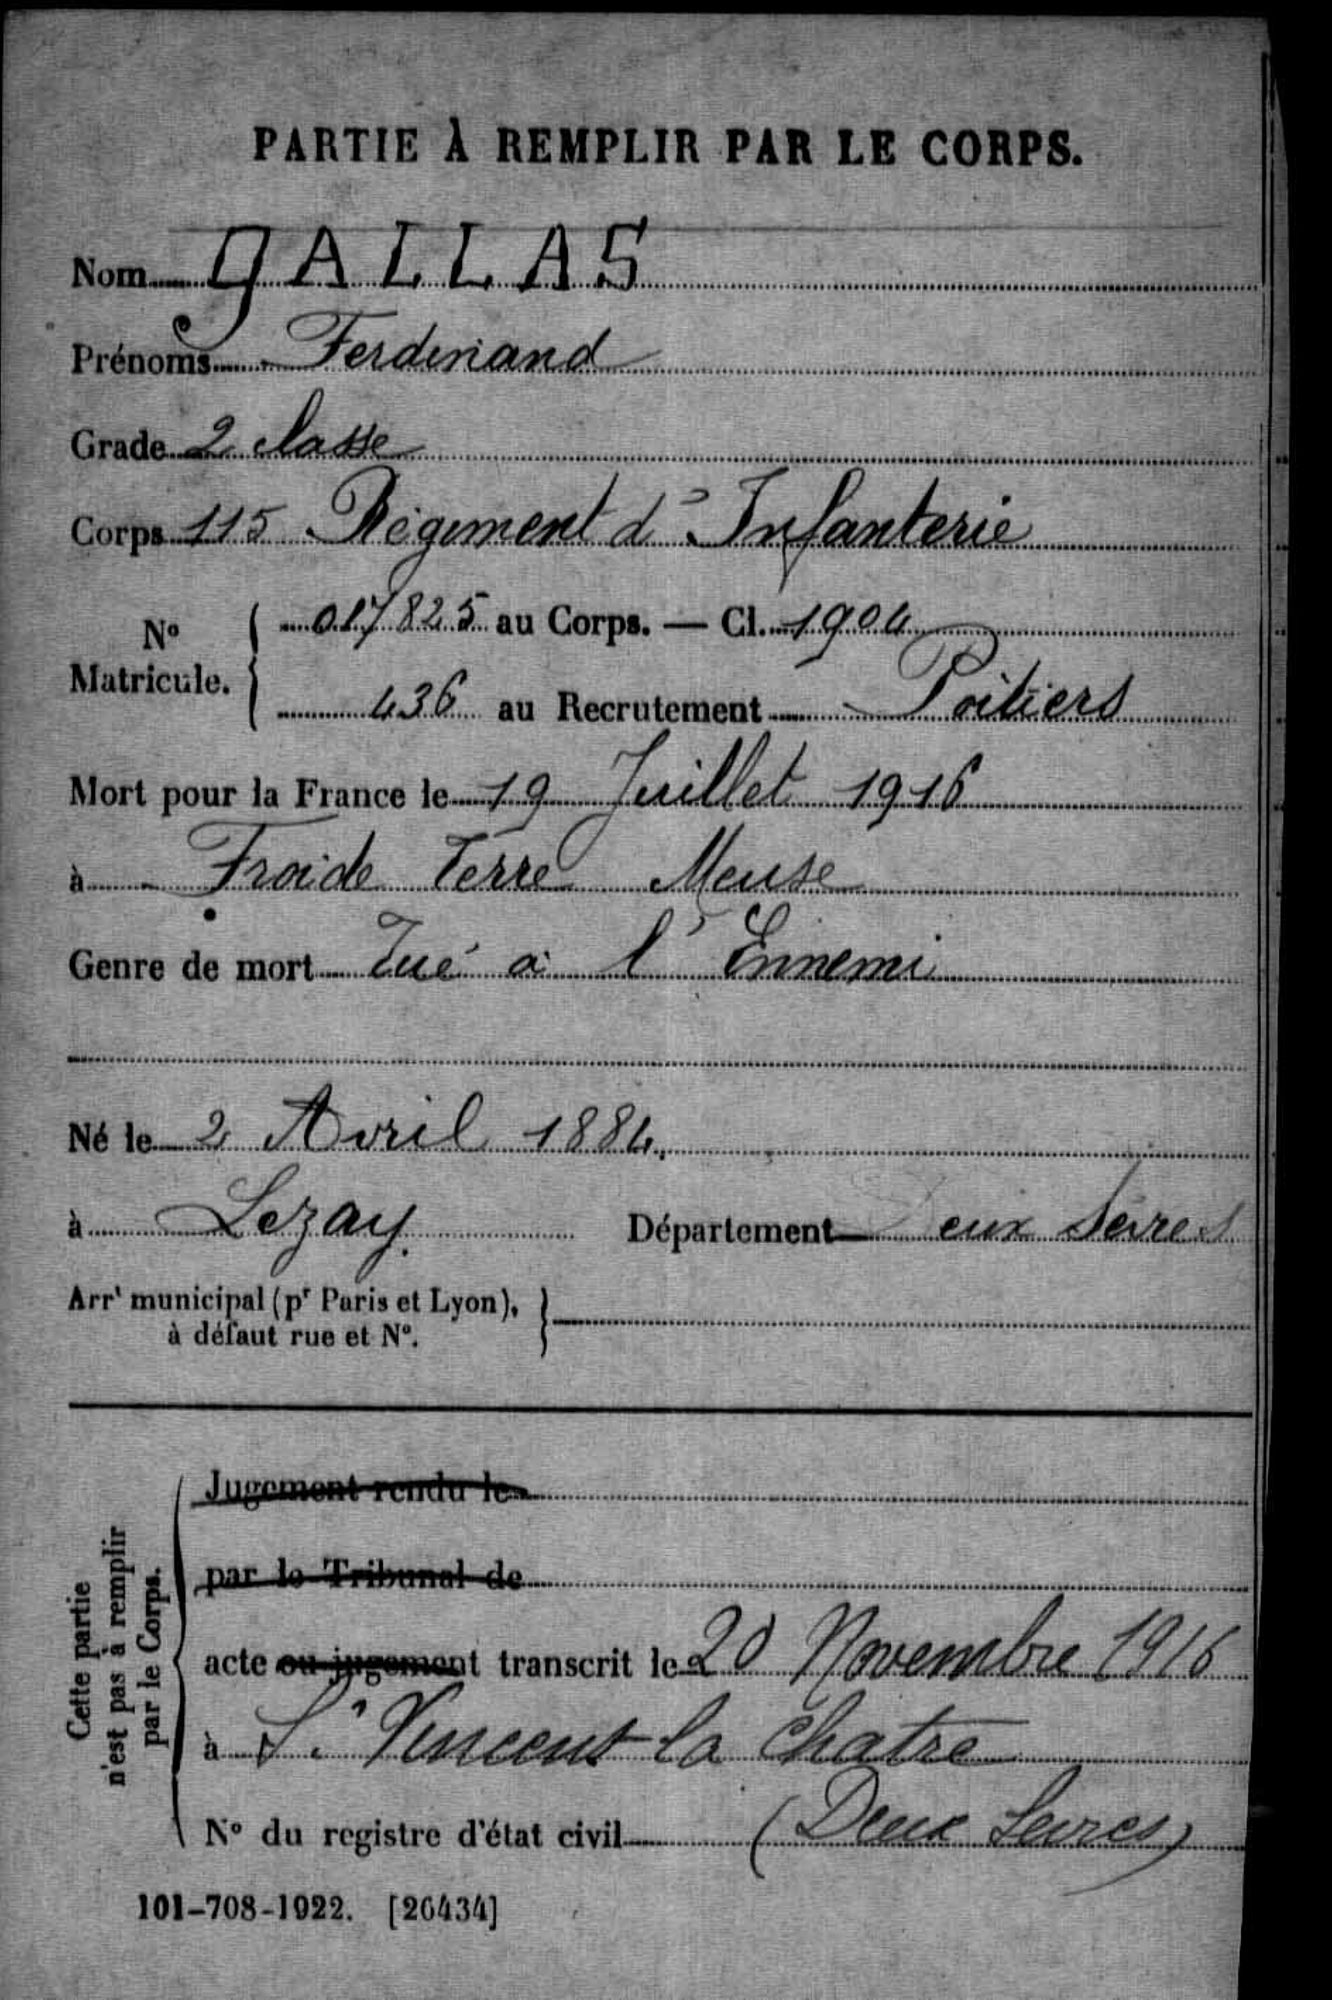 PARTIE À REMPLIR PAR LE CORPS.
Nom GALLAS
Prénoms Ferdinand
Grade 2 classe
Corps 115 Régiment d'Infanterie
N° Matricule. 017825 au Corps. — Cl. 1904
436 au Recrutement Poitiers
Mort pour la France le 19 Juillet 1916
à Froide Terre Meuse
Genre de mort Tué à l'Ennemi
Né le 2 Avril 1884
à Lezay Département Deux Sèvres
Arrt municipal (pr Paris et Lyon),
à défaut rue et N°.
Cette partie
n'est pas à remplir
par le Corps.
Jugement rendu le
par le Tribunal de
acte ou jugement transcrit le 20 Novembre 1916
à St Vincent la Chatre
N° du registre d'état civil (Deux Sevres)
101-708-1922. [26434]